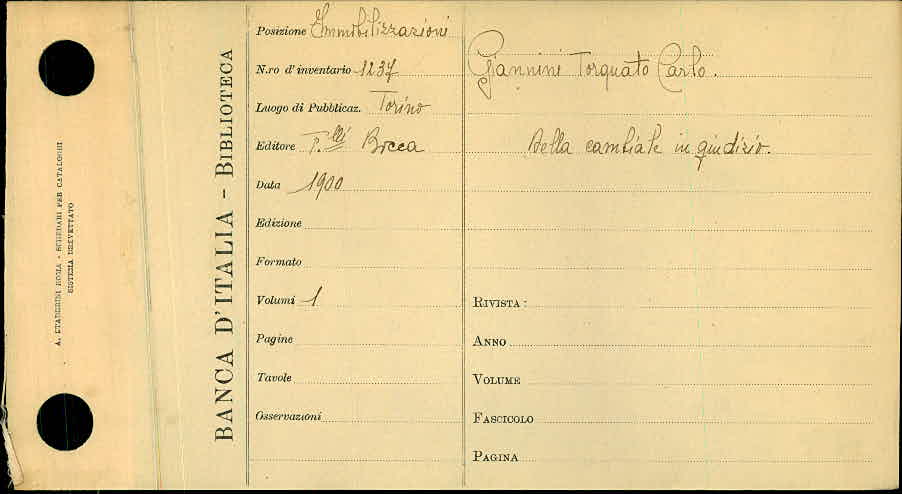 A. STADERINI ROMA - SCHEDARI PER CATALOGHI
SISTEMA BREVETTATO
BANCA D'ITALIA - BIBLIOTECA
Posizione Immobilizzazioni
N.ro d'inventario 1237
Luogo di Pubblicaz. Torino
Editore F.lli Bocca
Data 1900
Edizione
Formato
Volumi 1
Pagine
Tavole
Osservazioni
Giannini Torquato Carlo.
Della cambiale in giudizio.
RIVISTA :
ANNO
VOLUME
FASCICOLO
PAGINA